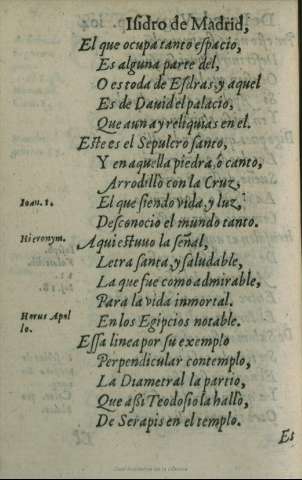 Isidro de Madrid,
El que ocupa tanto espacio,
Es alguna parte del,
O es toda de Esdras, y aquel
Es de Dauid el palacio,
Que aun ay reliquias en el.
Este es el Sepulcro santo,
Y en aquella piedra, ô canto,
Arrodillò con la Cruz,
Ioan. 1.
El que siendo vida, y luz,
Desconocio el mundo tanto.
Hieronym.
Aqui estuuo la señal,
Letra santa, y saludable,
La que fue como admirable,
Para la vida inmortal.
Horus Apol
lo.
En los Egipcios notable.
Essa linea por su exemplo
Perpendicular contemplo,
La Diametral la partio,
Que assi Teodosio la hallò,
De Serapis en el templo.
Es